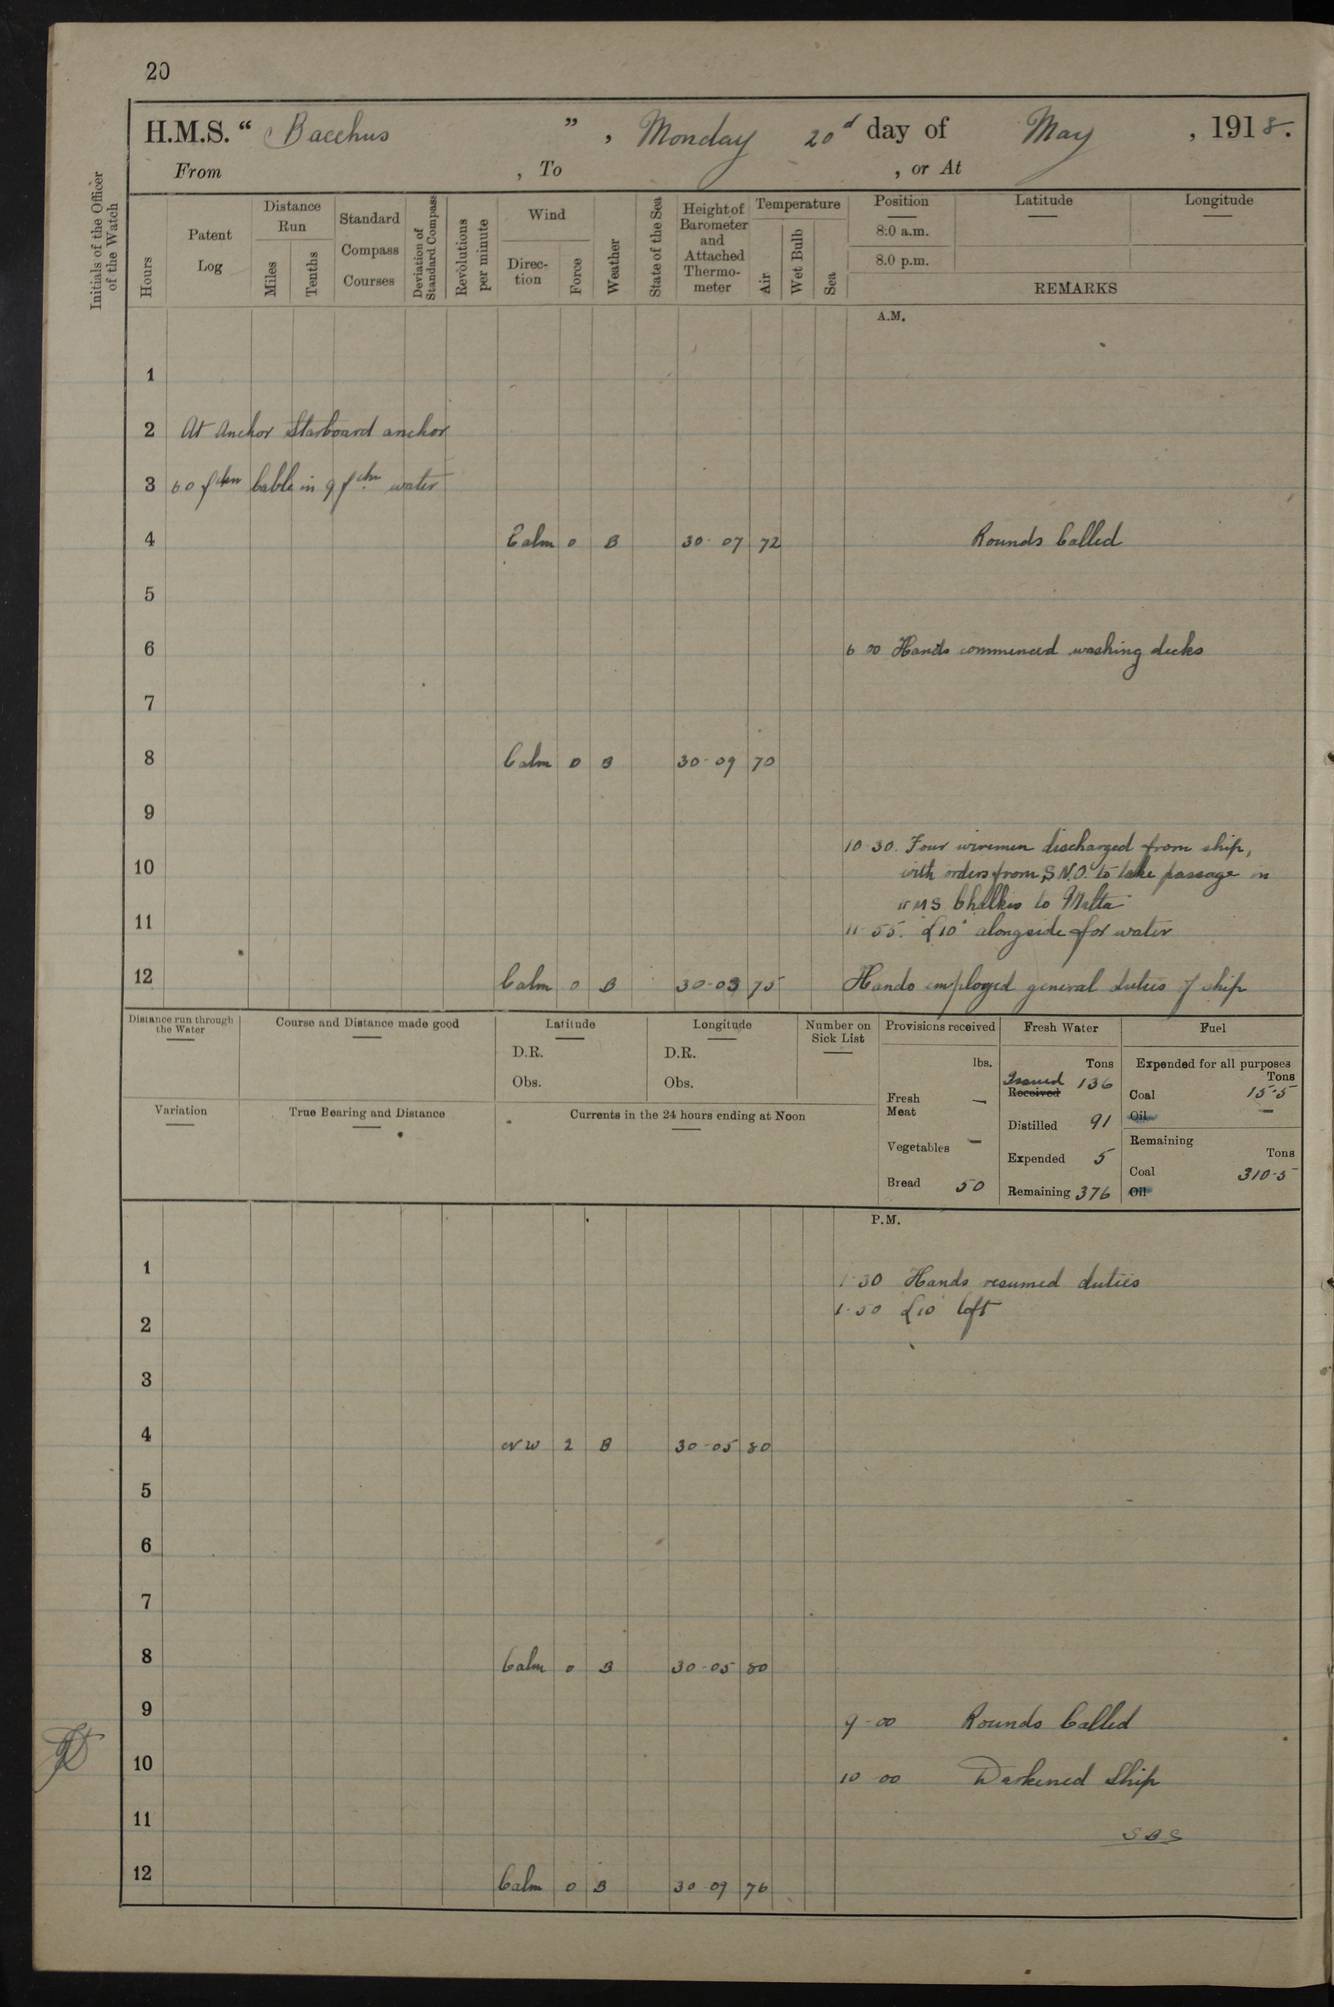 20
H.M.S. “ Bacchus ” , Monday 20d day of May , 1918.
From , To , or At
Initials of the Officer of the Watch
Hours
Patent Log
Distance Run
Miles
Tenths
Standard Compass Courses
Deviation of Standard Compass
Revolutions per minute
Wind
Direction
Force
Weather
State of the Sea
Height of Barometer and Attached Thermometer
Temperature
Air
Wet Bulb
Sea
Position
8.0 a.m.
8.0 p.m.
Latitude
Longitude
REMARKS
A.M.
1
2 At Anchor Starboard anchor
3 60 fthm Cable in 9 fthm water
4 Calm 0 B 30·07 72 Rounds Called
5
6 6 00 Hands commenced washing decks
7
8 Calm 0 B 30·09 70
9
10·30. Four wiremen discharged from ship,
10 with orders from S.N.O. to take passage in
HMS Chalkis to Malta
11 11·55. "L10" alongside for water
12 Calm 0 B 30·03 75 Hands employed general duties of ship
Distance run through the Water
Course and Distance made good
Latitude
D.R.
Obs.
Longitude
D.R.
Obs.
Number on Sick List
Provisions received
lbs.
Fresh Meat —
Vegetables —
Bread 50
Fresh Water
Tons
Issued
Received 136
Distilled 91
Expended 5
Remaining 376
Fuel
Expended for all purposes
Tons
Coal 15·5
Oil —
Remaining
Tons
Coal 310·5
Oil
Variation
True Bearing and Distance
Currents in the 24 hours ending at Noon
P.M.
1 1·30 Hands resumed duties
1·50 "L10" left
2
3
4 NW 2 B 30·05 80
5
6
7
8 Calm 0 B 30·05 80
9 9-00 Rounds Called
10 10 00 Darkened Ship
11 SBS
12 Calm 0 B 30 09 76